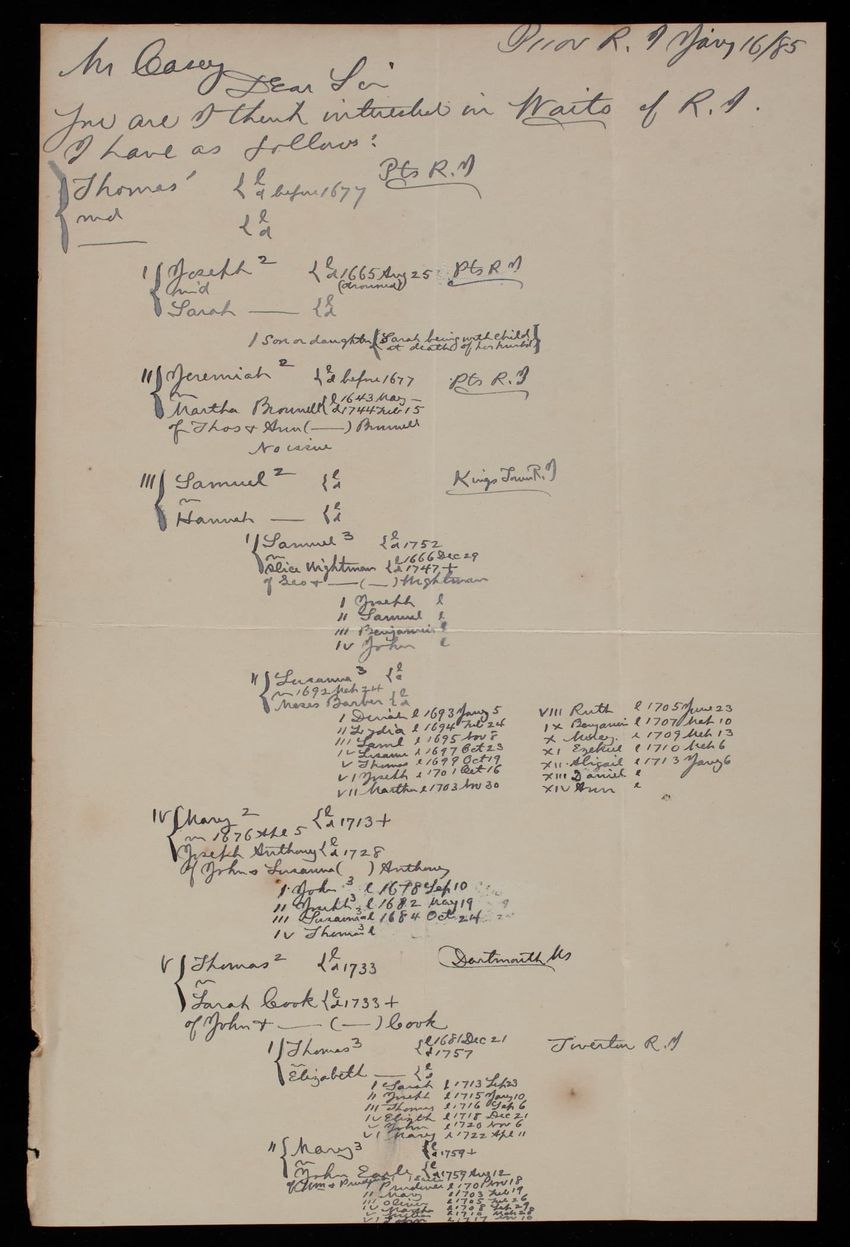 Prov R. I Jany 16/85
Mr Casey
Dear Sir
You are I think interested in Waits of R. I.
I have as follows:
Thomas' { b
d before 1677
Pts R. I
md
{ b
d
I { Joseph 2 { b
d 1665 Aug 25
(drowned)
Pts R. I
md
Sarah — { b
d
1 Son or daughter { Sarah being with child
at death of her husbd }
II { Jeremiah 2 { b
d before 1677
Pts R. I
m
Martha Brownell { b 1643 May —
d 1744 Feb 15
of Thos & Ann ( — ) Brownell
No issue
III { Samuel 2 { b
d
Kings Town R. I
m
Hannah — { b
d
I { Samuel 3 { b
d 1752
m
Alice Wightman { b 1666 Dec 29
d 1747 +
of Geo & — ( — ) Wightman
I Joseph b
II Samuel b
III Benjamin b
IV John b
II { Susanna 3 { b
d
m 1692 Mch 24
Moses Barber { b
d
I Dinah b 1693 Jany 5
II Lydia b 1694 Feb 24
III Saml b 1695 Nov 8
IV Susanna b 1697 Oct 23
V Thomas b 1699 Oct 19
VI Joseph b 1701 Oct 16
VII Martha b 1703 Nov 30
VIII Ruth b 1705 June 23
IX Benjamin b 1707 Mch 10
X b 1709 Mch 13
XI Ezekiel b 1710 Mch 6
XII Abigail b 1713 Jany 6
XIII Daniel b
XIV Ann b
IV { Mary 2 { b
d 1713 +
m 1676 Apl 5
Joseph Anthony { b
d 1728
of John & Susanna ( ) Anthony
I John 3 b 1678 Sep 10
II Joseph 3 b 1682 May 19
III Susanna 3 b 1684 Oct 24
IV Thomas 3 b
V { Thomas 2 { b
d 1733
Dartmouth Ms
m
Sarah Cook { b
d 1733 +
of John & — ( — ) Cook
I { Thomas 3 { b 1681 Dec 21
d 1757
Tiverton R. I
m
Elizabeth — { b
d
I Sarah b 1713 Feb 23
II Joseph b 1715 Jany 10
III Thomas b 1716 Sep 6
IV Elizth b 1718 Dec 21
V John b 1720 Nov 6
VI Mary b 1722 Apl 11
II { Mary 3 { b
d 1759 +
m
John Earle { b
d 1759 Aug 12
of Wm & Prudence
I Prudence b 170 Nov 18
II Mary b 1703 Feb 19
III Oliver b 1705 Feb 26
IV Martha b 1708 Feb 29
V b 1710 Mch 28
VI John b 1717 Nov 10